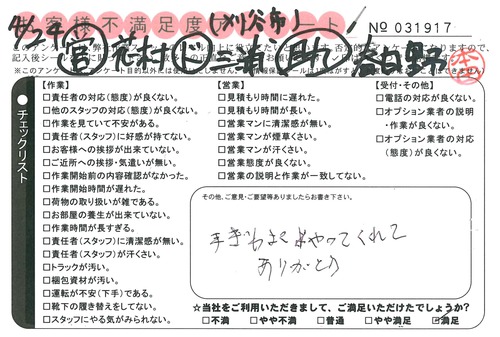 お客様不満足度アンケート
刈谷市
No 031917
【作業】
□責任者の対応（態度）が良くない。
□他のスタッフの対応（態度）が良くない。
□作業を見ていて不安がある。
□責任者（スタッフ）に好感が持てない。
□お客様への挨拶が出来ていない。
□ご近所への挨拶・気遣いが無い。
□作業開始前の内容確認がなかった。
□作業開始時間が遅れた。
□荷物の取り扱いが雑である。
□お部屋の養生が出来ていない。
□作業時間が長すぎる。
□責任者（スタッフ）に清潔感が無い。
□責任者（スタッフ）が汗くさい。
□トラックが汚い。
□梱包資材が汚い。
□運転が不安（下手）である。
□靴下の履き替えをしてない。
□スタッフにやる気がみられない。
【営業】
□見積もり時間に遅れた。
□見積もり時間が長い。
□営業マンに清潔感が無い。
□営業マンが煙草くさい。
□営業マンが汗くさい。
□営業態度が良くない。
□営業の説明と作業が一致してない。
【受付・その他】
□電話の対応が良くない。
□オプション業者の説明
・作業が良くない。
□オプション業者の対応
（態度）が良くない。
チェックリスト
その他、ご意見・ご要望等ありましたらお書き下さい。
手ぎわよくやってくれて
ありがとう
☆当社をご利用いただきまして、ご満足いただけたでしょうか？
□不満 □やや不満 □普通 □やや満足 □満足